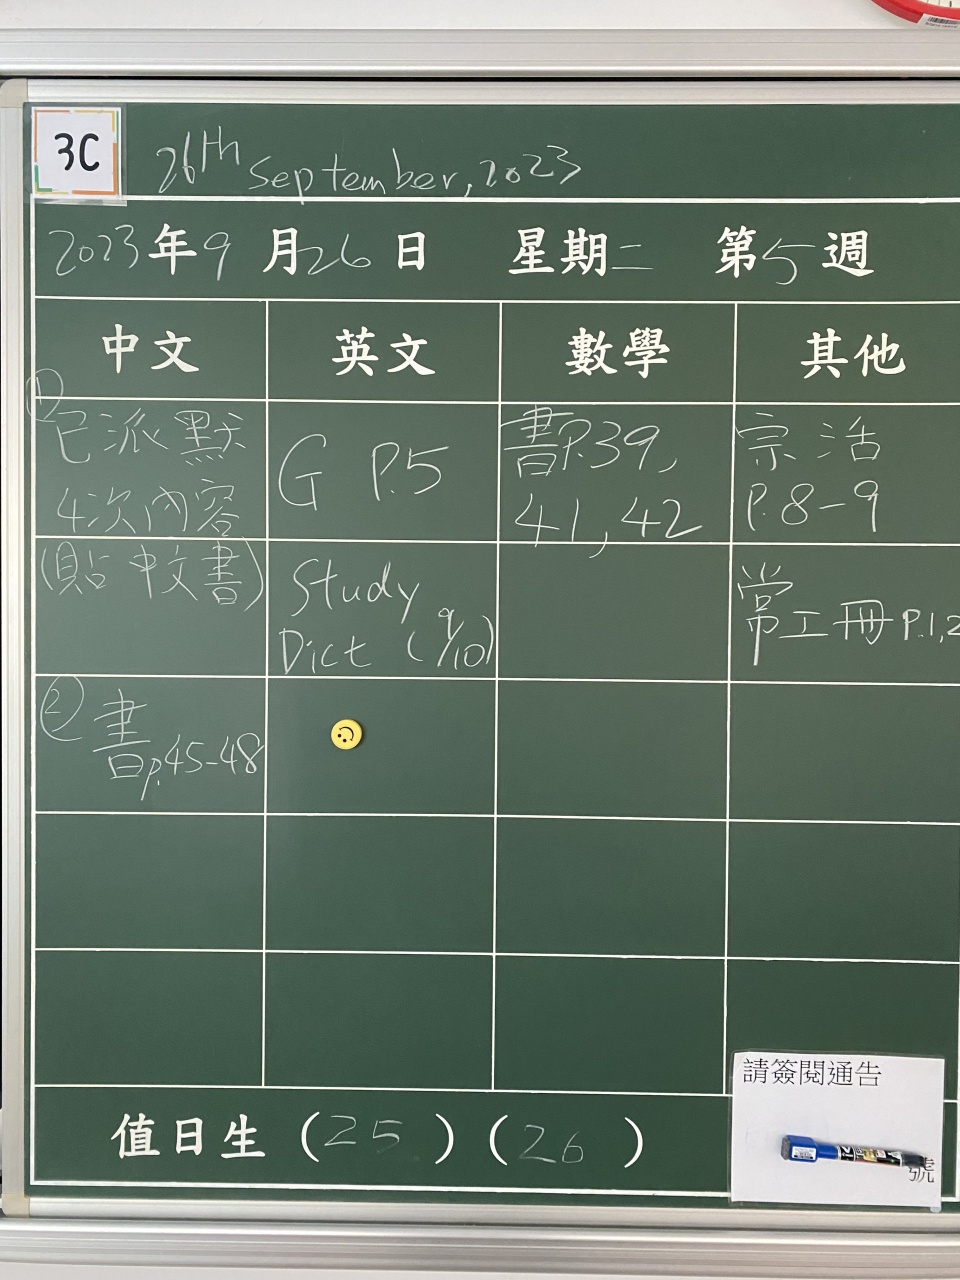 3C
26th September, 2023
2023年9月26日 星期二 第5週
中文 英文 數學 其他
①
已派默
4次內容
(貼中文書)
②
書p.45-48
G P.5
Study
Dict (9/10)
書P.39,
41,42
宗活
P.8-9
常工冊P.1,2
值日生(25)(26)
請簽閱通告
號